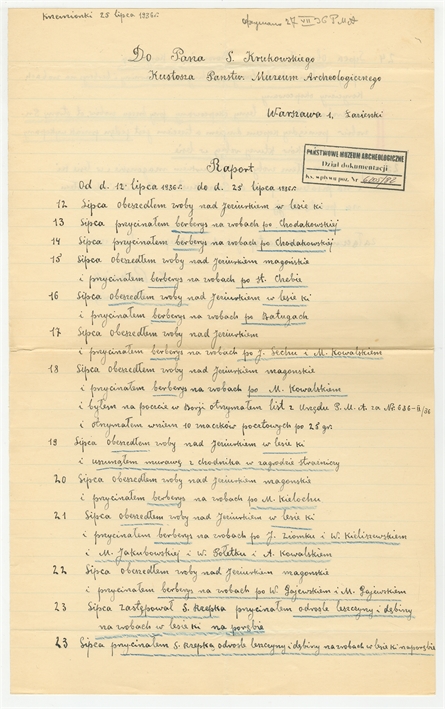 Krzemionki 25 lipca 1936r.
Otrzymano 27 VII 36 P.M.A
Do Pana S. Krukowskiego
Kustosza Państw. Muzeum Archeologicznego
Warszawa 1, Łazienki
PAŃSTWOWE MUZEUM ARCHEOLOGICZNE
Dział dokumentacji
ks. wpływu poz. Nr
Raport
Od d. 12 lipca 1936r. do d. 25 lipca 1936r.
12 Lipca obeszedłem zroby nad Jeziurkiem w lesie ki
13 Lipca przycinałem berberys na zrobach po Chodakowskiej
14 Lipca przycinałem berberys na zrobach po Chodakowskiej
15 Lipca obeszedłem zroby nad Jeziurkiem magońskie
i przycinałem berberys na zrobach po St. Chebie
16 Lipca obeszedłem zroby nad Jeziurkiem w lesie ki
i przycinałem berberys na zrobach po Baługach
17 Lipca obeszedłem zroby nad Jeziurkiem
i przycinałem berberys na zrobach po J. Sechu i M. Kowalskiem
18 Lipca obeszedłem zroby nad Jeziurkiem magonskie
i przycinałem berberys na zrobach po M. Kowalskiem
i byłem na poczcie w Borji otrzymałem list z Urzędu P.M.A za Nr. 636-II/36
i otrzymałem wniem 10 znaczków pocztowych po 25 gr.
19 Lipca obeszedłem zroby nad Jeziurkiem w lesie ki
i usunąłem murawę z chodnika w zagrodzie strażnicy
20 Lipca obeszedłem zroby nad Jeziurkiem magonskie
i przycinałem berberys na zrobach po M. Kielochu
21 Lipca obeszedłem zroby nad Jeziurkiem w lesie ki
i przycinałem berberys na zrobach po J. Ziomku i W. Kieliszewskiem
i M. Jakubowskiej i W. Połetku i A. Kowalskiem
22 Lipca obeszedłem zroby nad Jeziurkiem magonskie
i przycinałem berberys na zrobach po W. Gajewskiem i M. Gajewskiem
23 Lipca zastępował S. Krzepka przycinałem odrosle leszczyny i dębiny
na zrobach w lesie ki na porębie
23 Lipca przycinałem S. Krzepką odrosle leszczyny i dębiny na zrobach w lesie ki na porębie